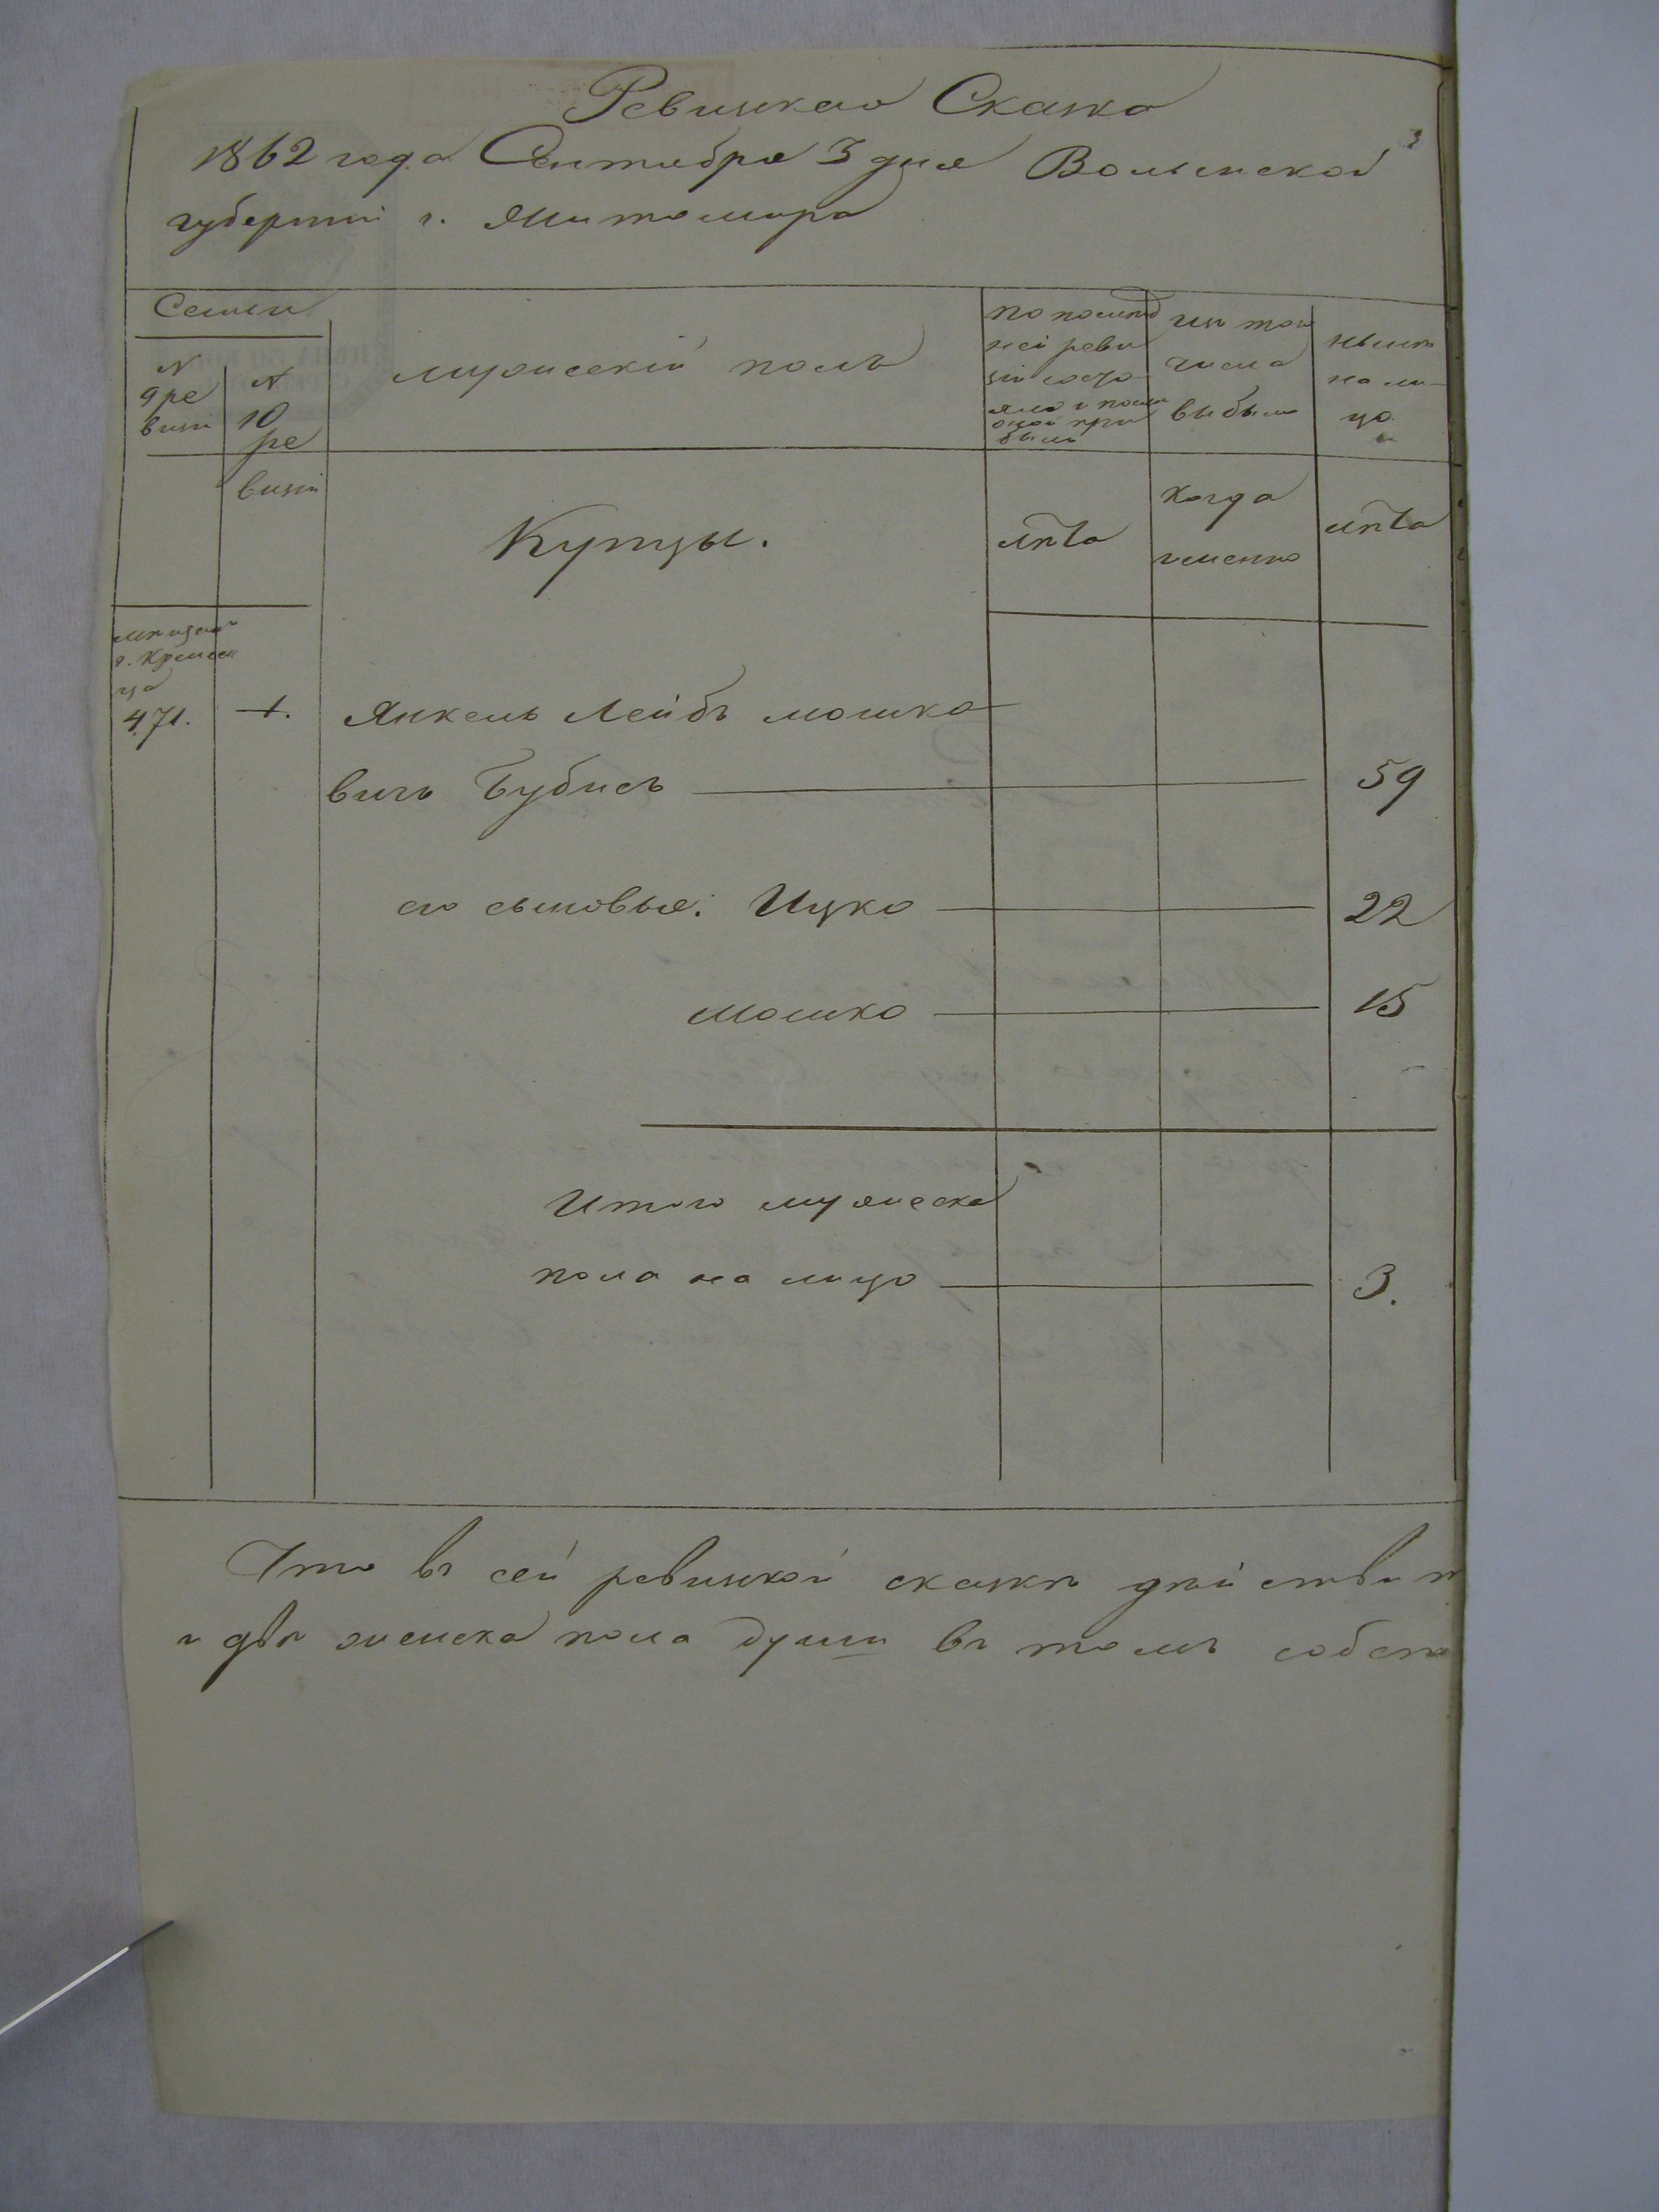 Ревизская Сказка
1862 года Сентября 3 дня Волынской
губернии г. Житомира
3
Семьи
N
9 ре
визи
N
10
ре
визіи
мужескій полъ
по послѣд
ней реви
зіи состо
яло и посли
оной при
было
изъ того
числа
выбыло
нынѣ
на ли-
цо
Купцы.
лѣта
когда
именно
лѣта
мѣщан
г. Кремен
ца
471.
1.
Янкель Лейбъ Мошко-
вичъ Бубисъ
59
его сыновья: Ицко
22
Мошко
15
Итого мужеска
пола на лицо
3.
Что въ сей ревизской сказкѣ дѣйствит
и двѣ женска пола души въ томъ собств